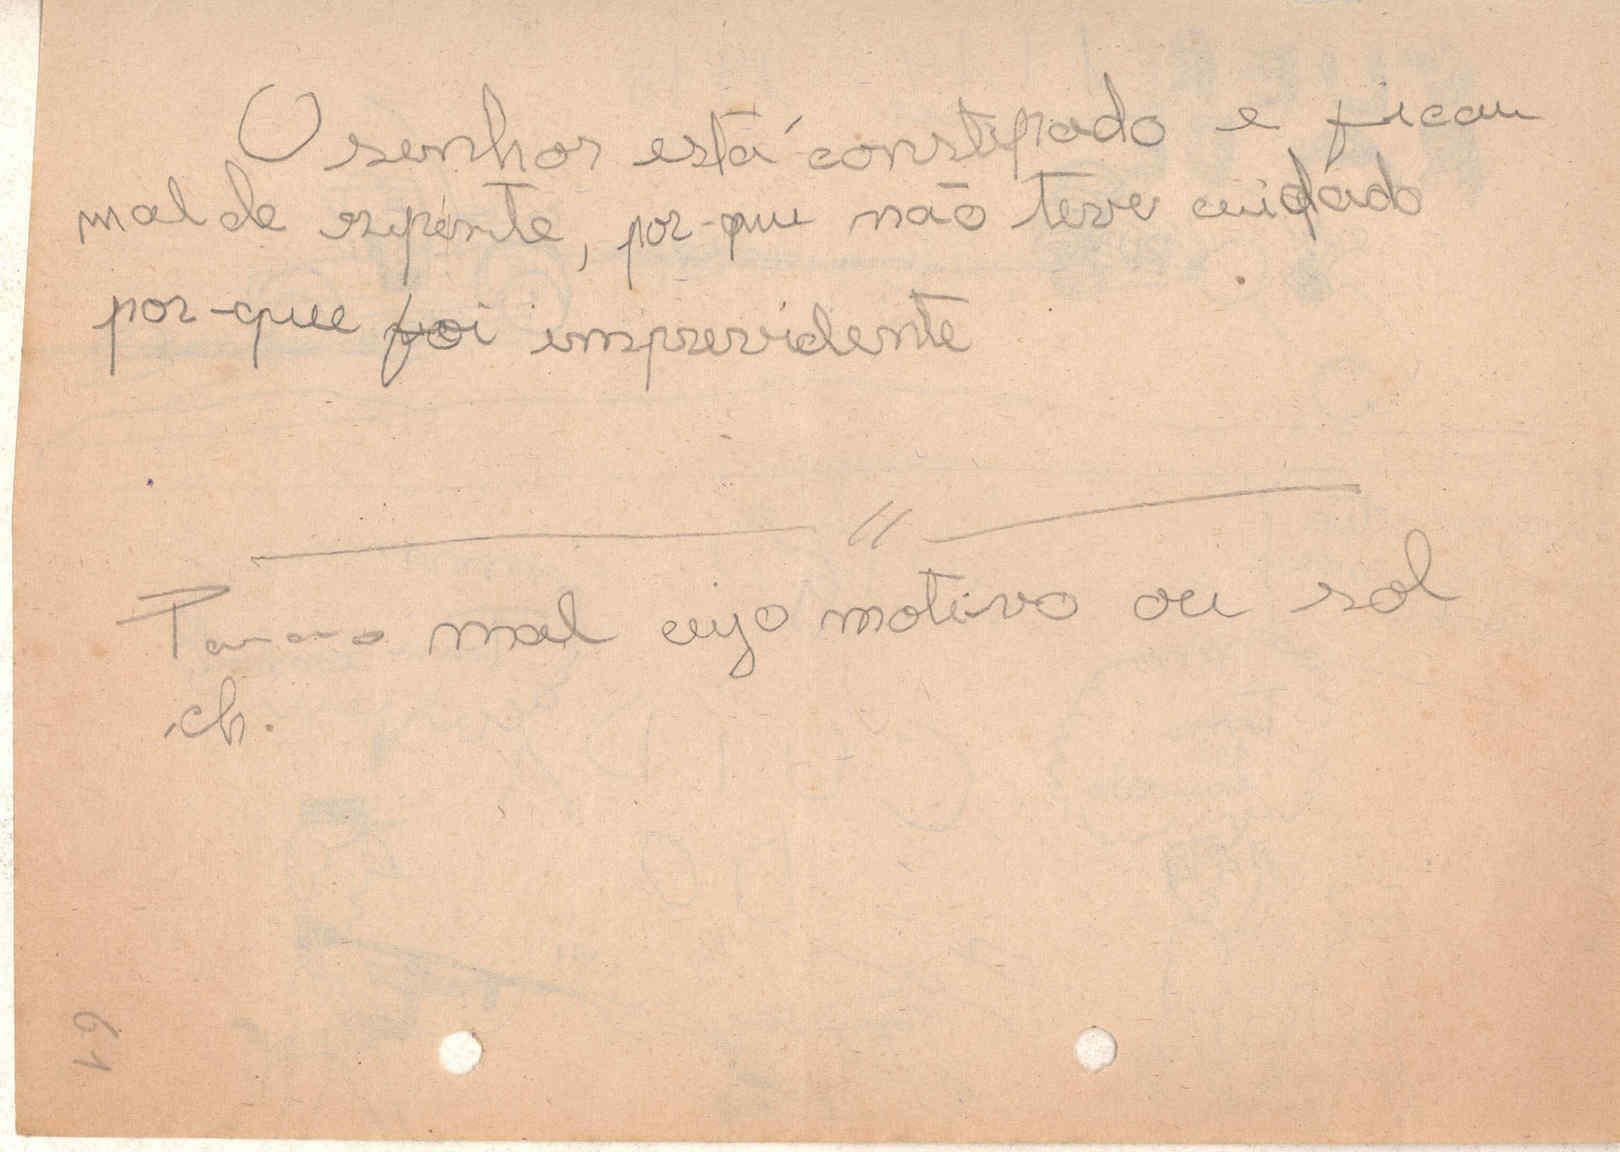 O senhor está constipado e ficou
mal de repente, por-que não teve cuidado
por-que foi imprevidente
mal cujo motivo ou sol
ch.
61